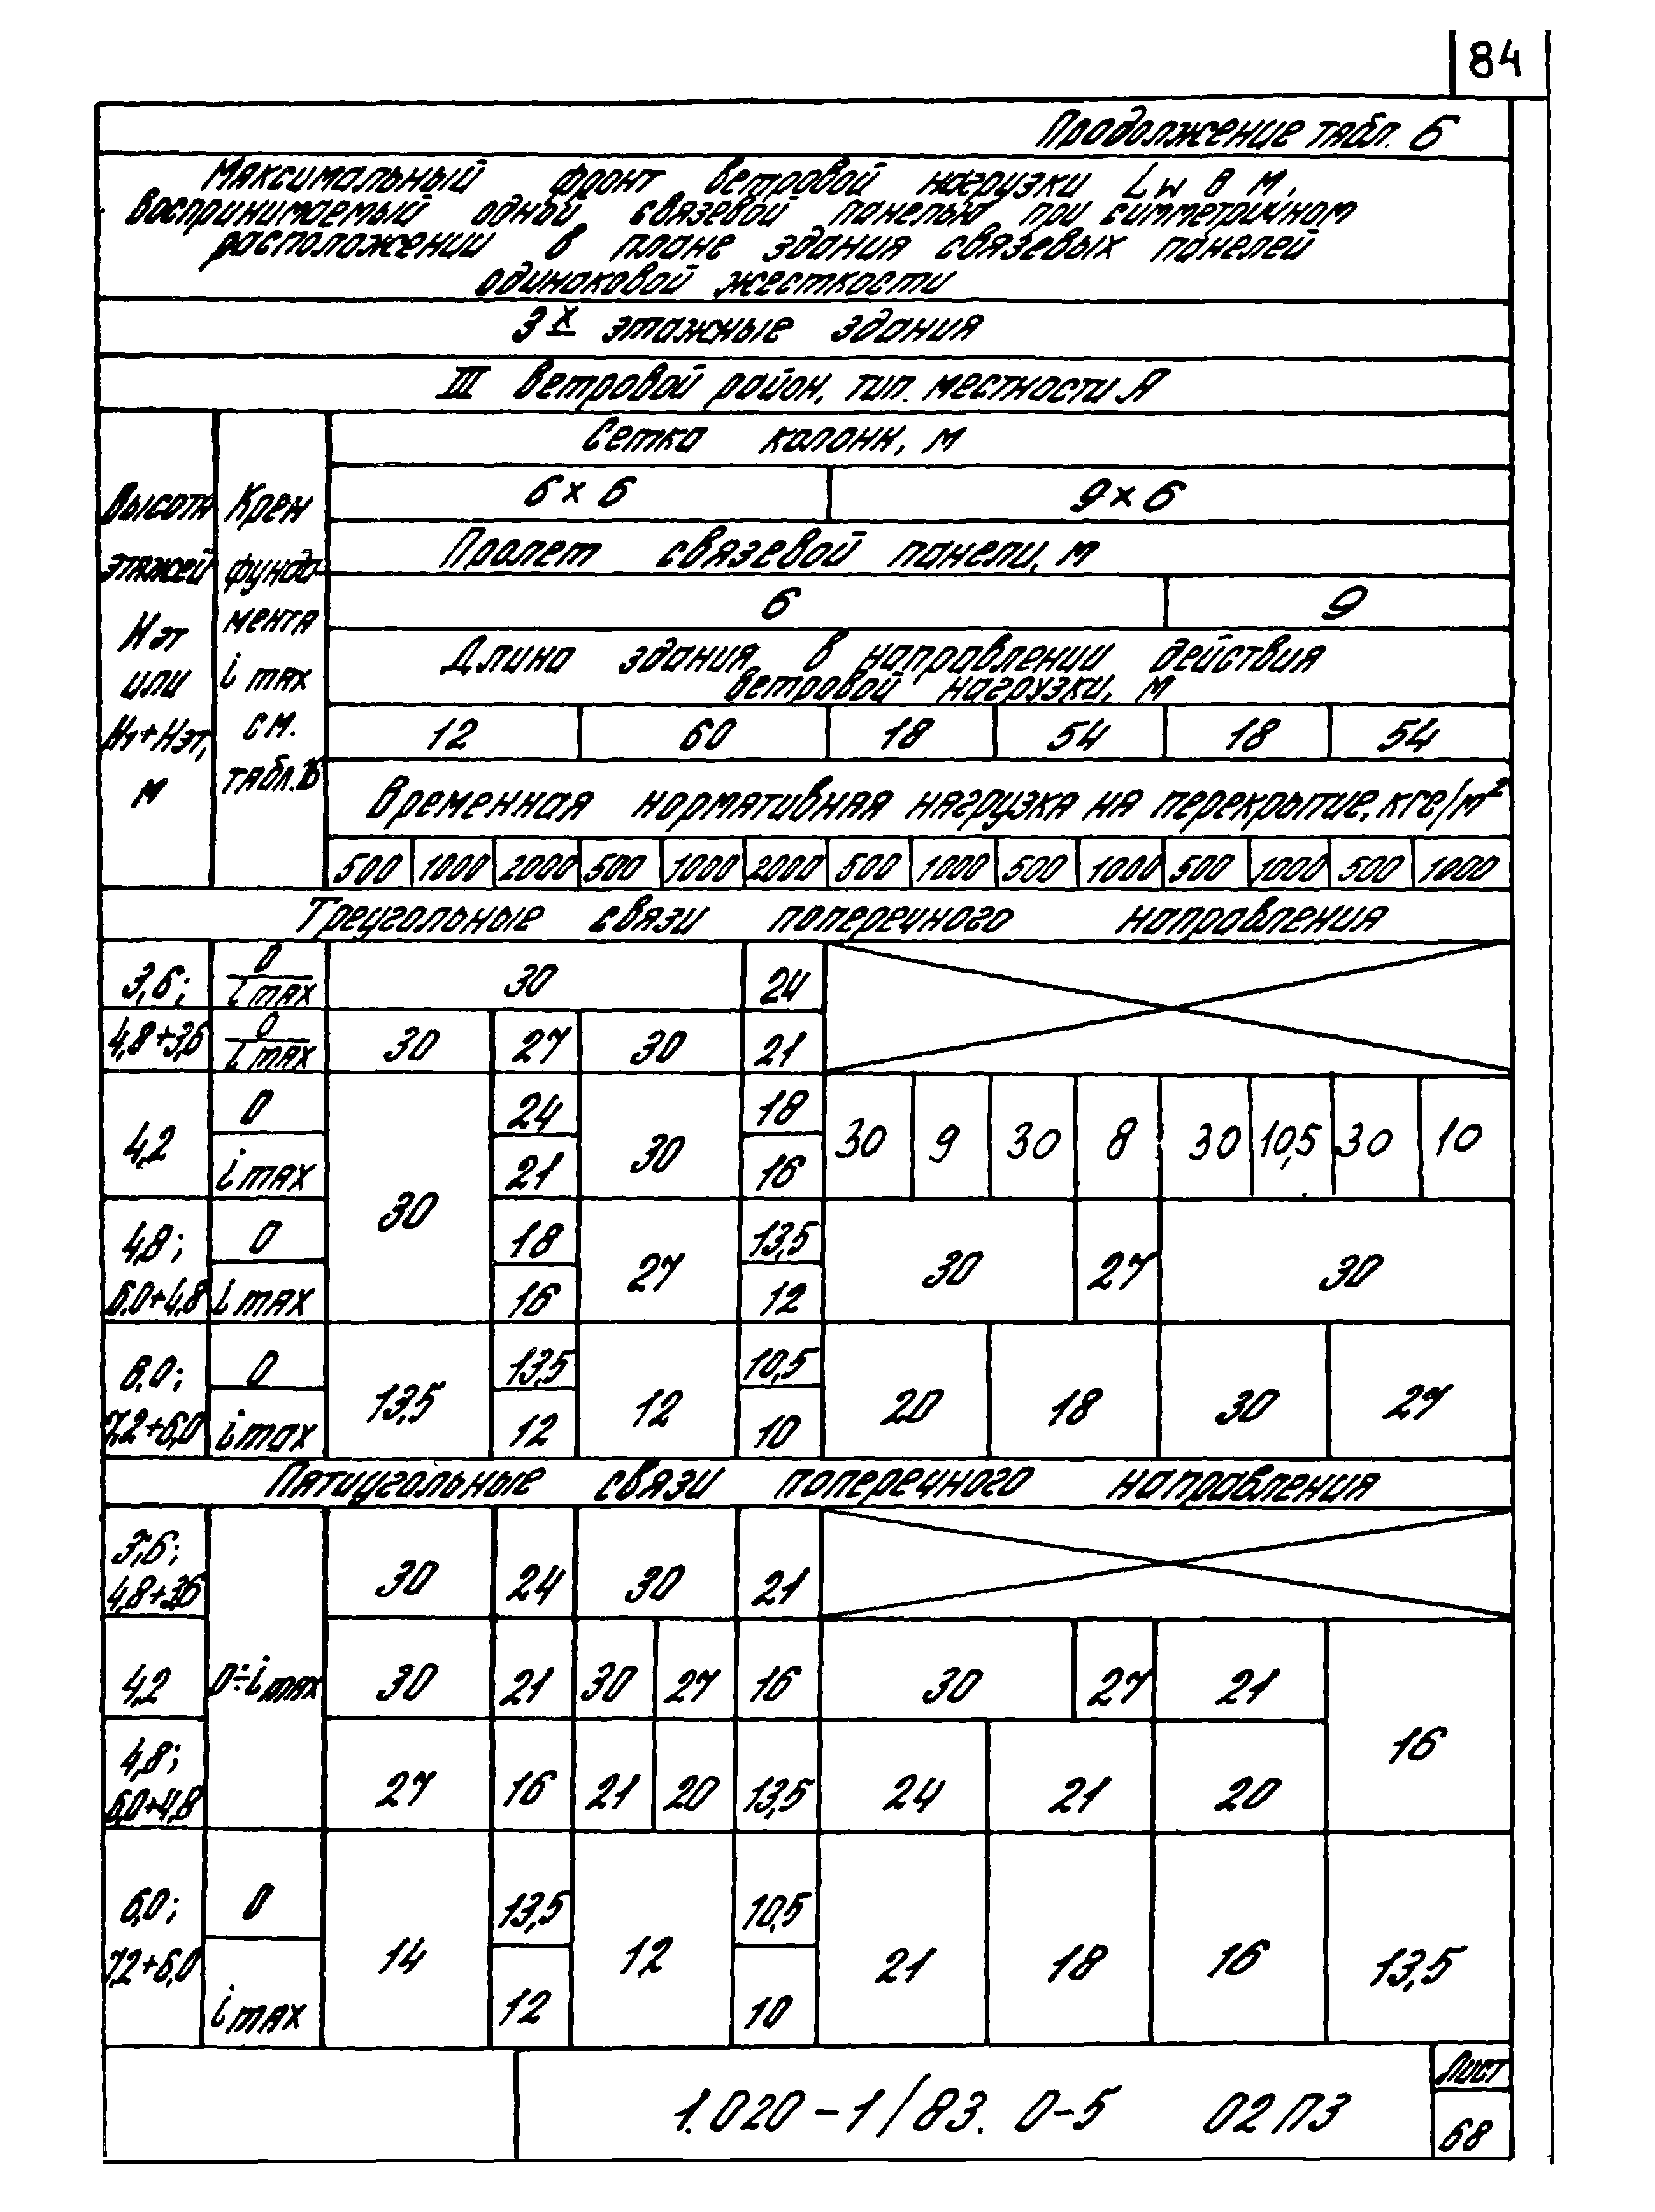 84
Продолжение табл. 6
Максимальный фронт ветровой нагрузки Lw в м,
воспринимаемый одной связевой панелью при симметричном
расположении в плане здания связевых панелей
одинаковой жесткости
3х этажные здания
III ветровой район, тип местности А
Сетка колонн, м
Высота этажей Hэт или H1+Hэт, м
Крен фундамента i max см. табл.16
6 × 6 9 × 6
Пролет связевой панели, м
6 9
Длина здания в направлении действия
ветровой нагрузки, м
12 60 18 54 18 54
Временная нормативная нагрузка на перекрытие, кгс/м²
500 1000 2000 500 1000 2000 500 1000 500 1000 500 1000 500 1000
Треугольные связи поперечного направления
3,6; 0/i max 30 24
4,8+3,6 0/i max 30 27 30 21
4,2 0 24 18
30 30 9 30 8 30 10,5 30 10
i max 21 16
30
4,8; 0 18 13,5
27 30 27 30
6,0+4,8 i max 16 12
6,0; 0 13,5 10,5
13,5 12 20 18 30 27
7,2+6,0 i max 12 10
Пятиугольные связи поперечного направления
3,6;
4,8+3,6 30 24 30 21
4,2 0÷i max 30 21 30 27 16 30 27 21
16
4,8;
6,0+4,8 27 16 21 20 13,5 24 21 20
6,0; 0 13,5 10,5
7,2+6,0 14 12 21 18 16 13,5
i max 12 10
Лист
1.020-1/83. 0-5 02ПЗ
68